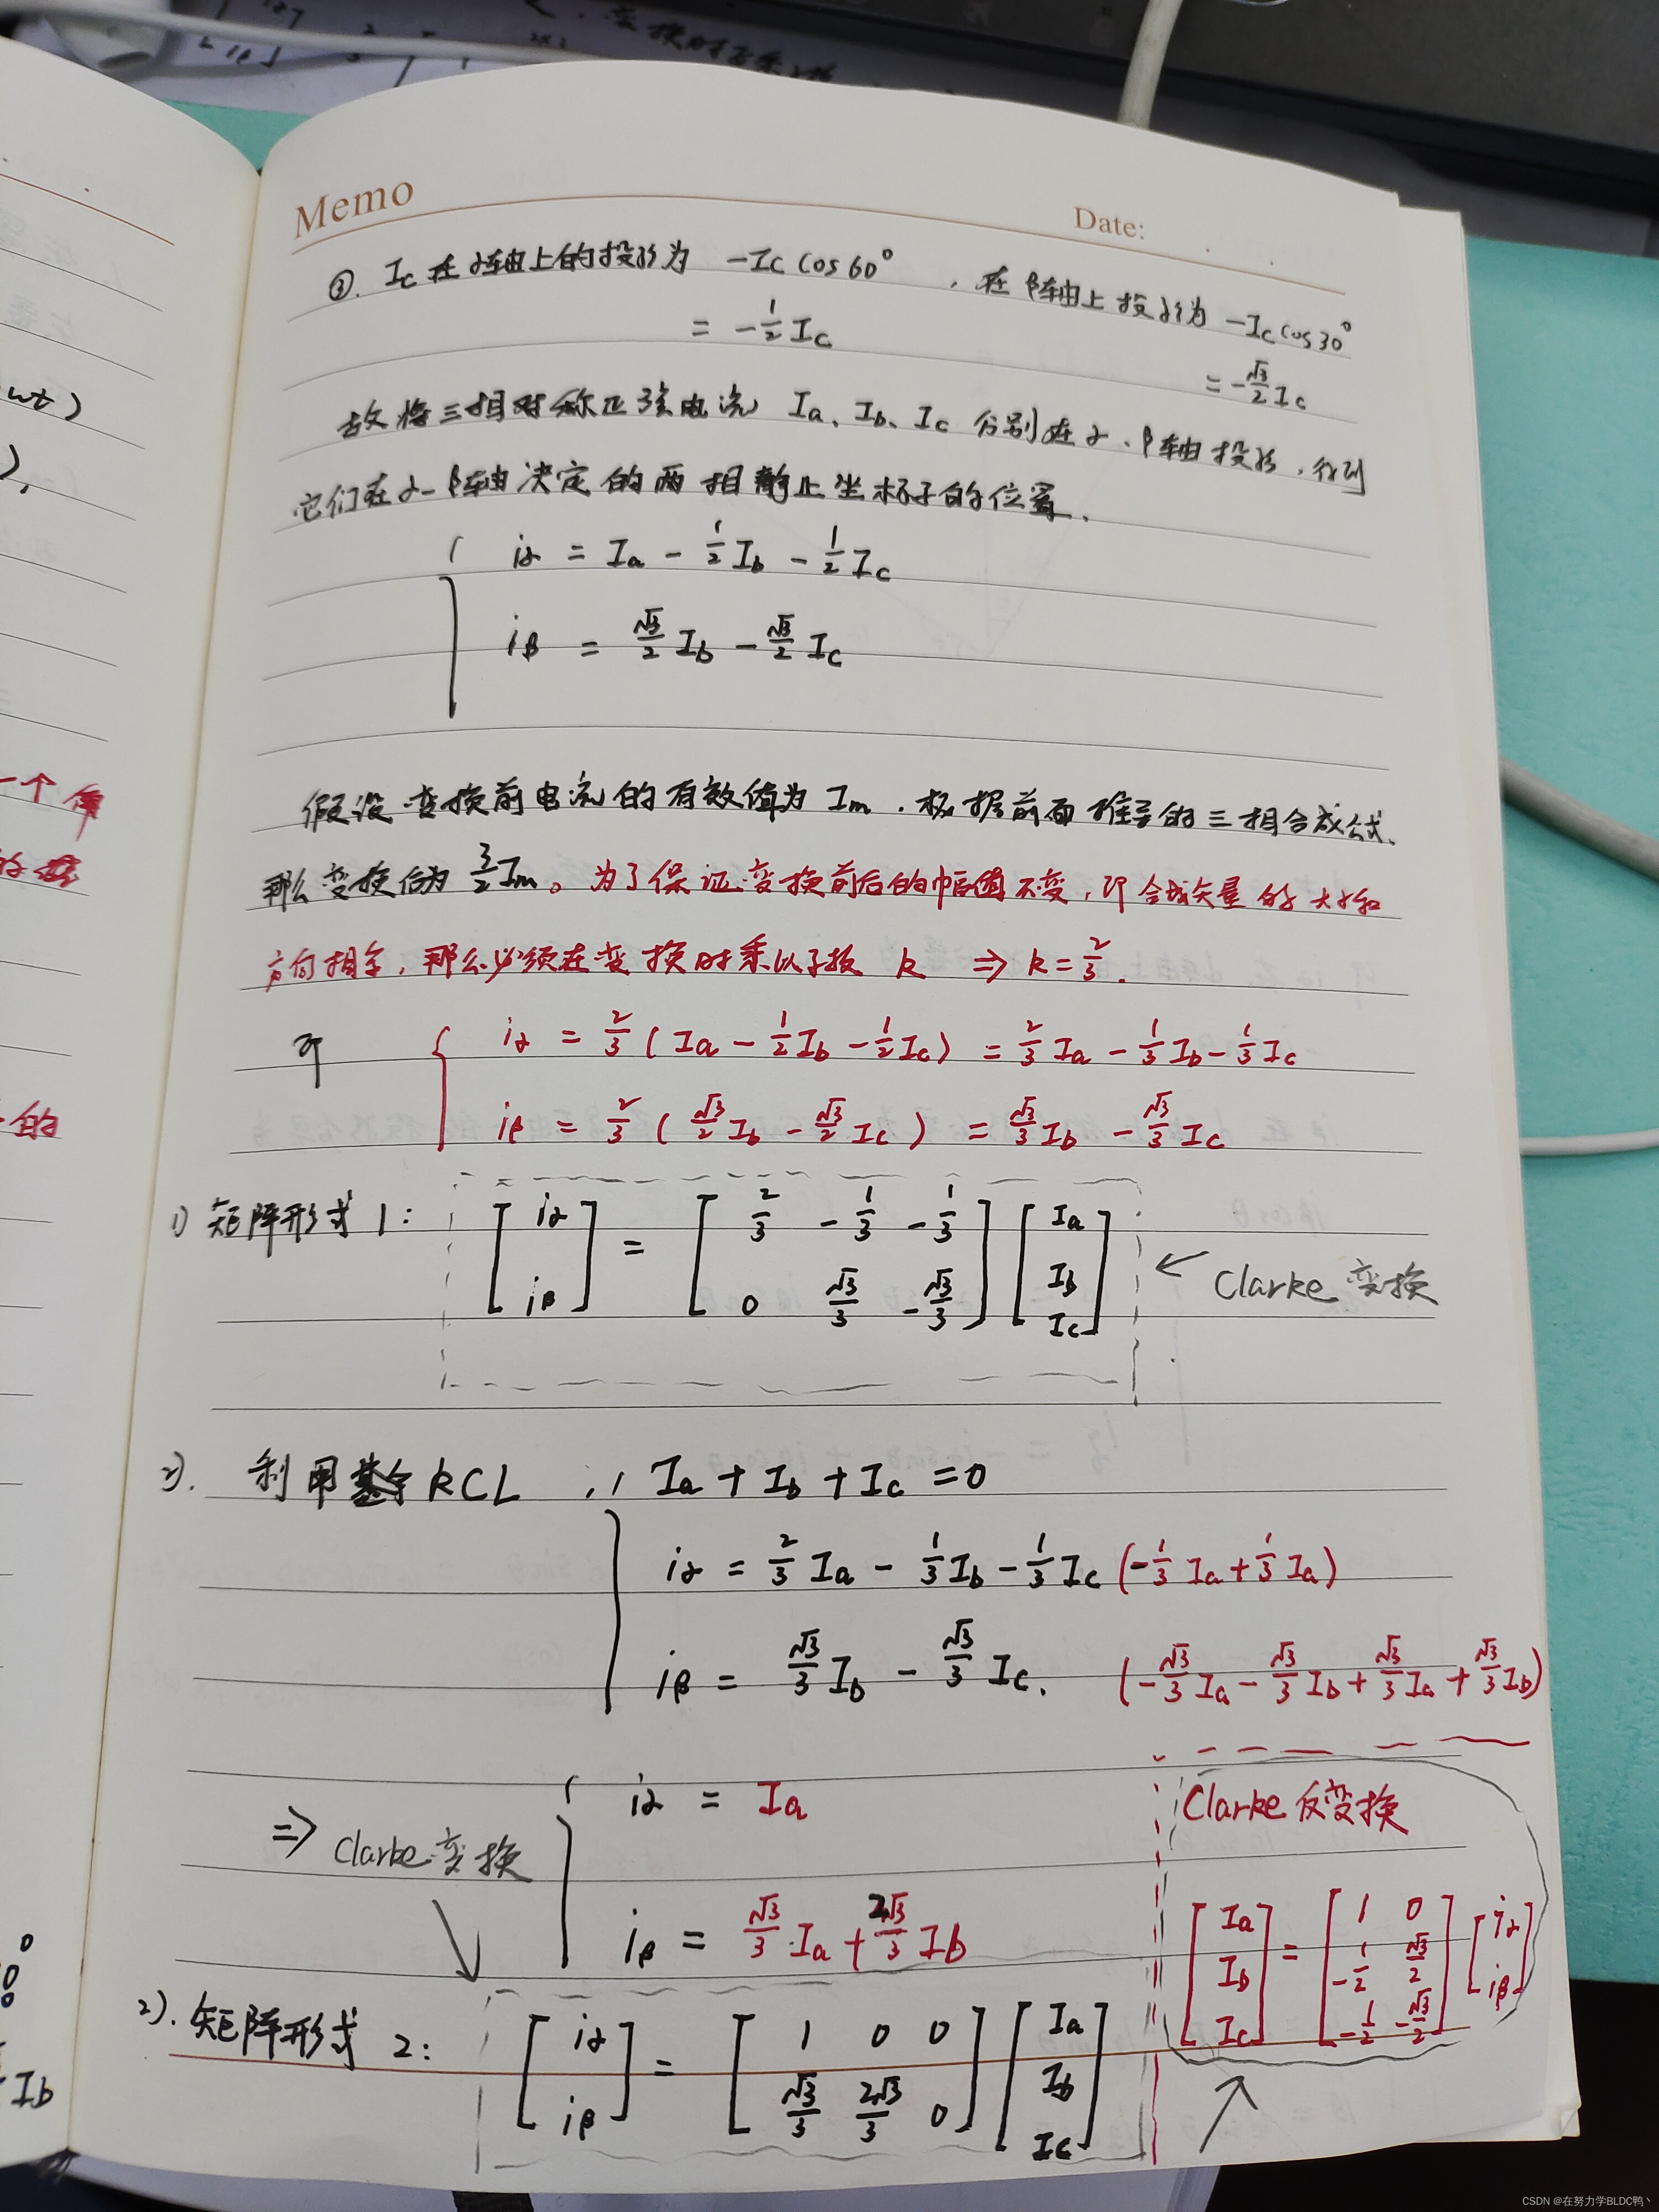 变换时需乘以系
Memo
Date:
③. Ic 在α轴上的投影为 -Ic cos60° , 在β轴上投影为 -Ic cos30°
= -1/2 Ic
= -√3/2 Ic
故将三相对称正弦电流 Ia、Ib、Ic 分别在α、β轴投影,得到
它们在α-β轴决定的两相静止坐标系的位置.
iα = Ia - 1/2 Ib - 1/2 Ic
iβ = √3/2 Ib - √3/2 Ic
假设变换前电流的有效值为 Im . 根据前面推导的三相合成公式,
那么变换后为 3/2 Im。为了保证变换前后的幅值不变,即合成矢量的大小和
方向相等,那么必须在变换时乘以系数 k ⇒ k = 2/3 .
即
iα = 2/3 ( Ia - 1/2 Ib - 1/2 Ic ) = 2/3 Ia - 1/3 Ib - 1/3 Ic
iβ = 2/3 ( √3/2 Ib - √3/2 Ic ) = √3/3 Ib - √3/3 Ic
1) 矩阵形式 1: [iα iβ] = [2/3 -1/3 -1/3; 0 √3/3 -√3/3] [Ia Ib Ic] ← Clarke 变换
2). 利用基尔 KCL ∴ Ia + Ib + Ic = 0
iα = 2/3 Ia - 1/3 Ib - 1/3 Ic (-1/3 Ia + 1/3 Ia)
iβ = √3/3 Ib - √3/3 Ic. (-√3/3 Ia - √3/3 Ib + √3/3 Ia + √3/3 Ib)
⇒ Clarke 变换
iα = Ia
iβ = √3/3 Ia + 2√3/3 Ib
Clarke 反变换
[Ia Ib Ic] = [1 0; -1/2 √3/2; -1/2 -√3/2] [iα iβ]
2). 矩阵形式 2: [iα iβ] = [1 0 0; √3/3 2√3/3 0] [Ia Ib Ic]
wt)
一个
的
的
Ib
CSDN @在努力学BLDC鸭丶